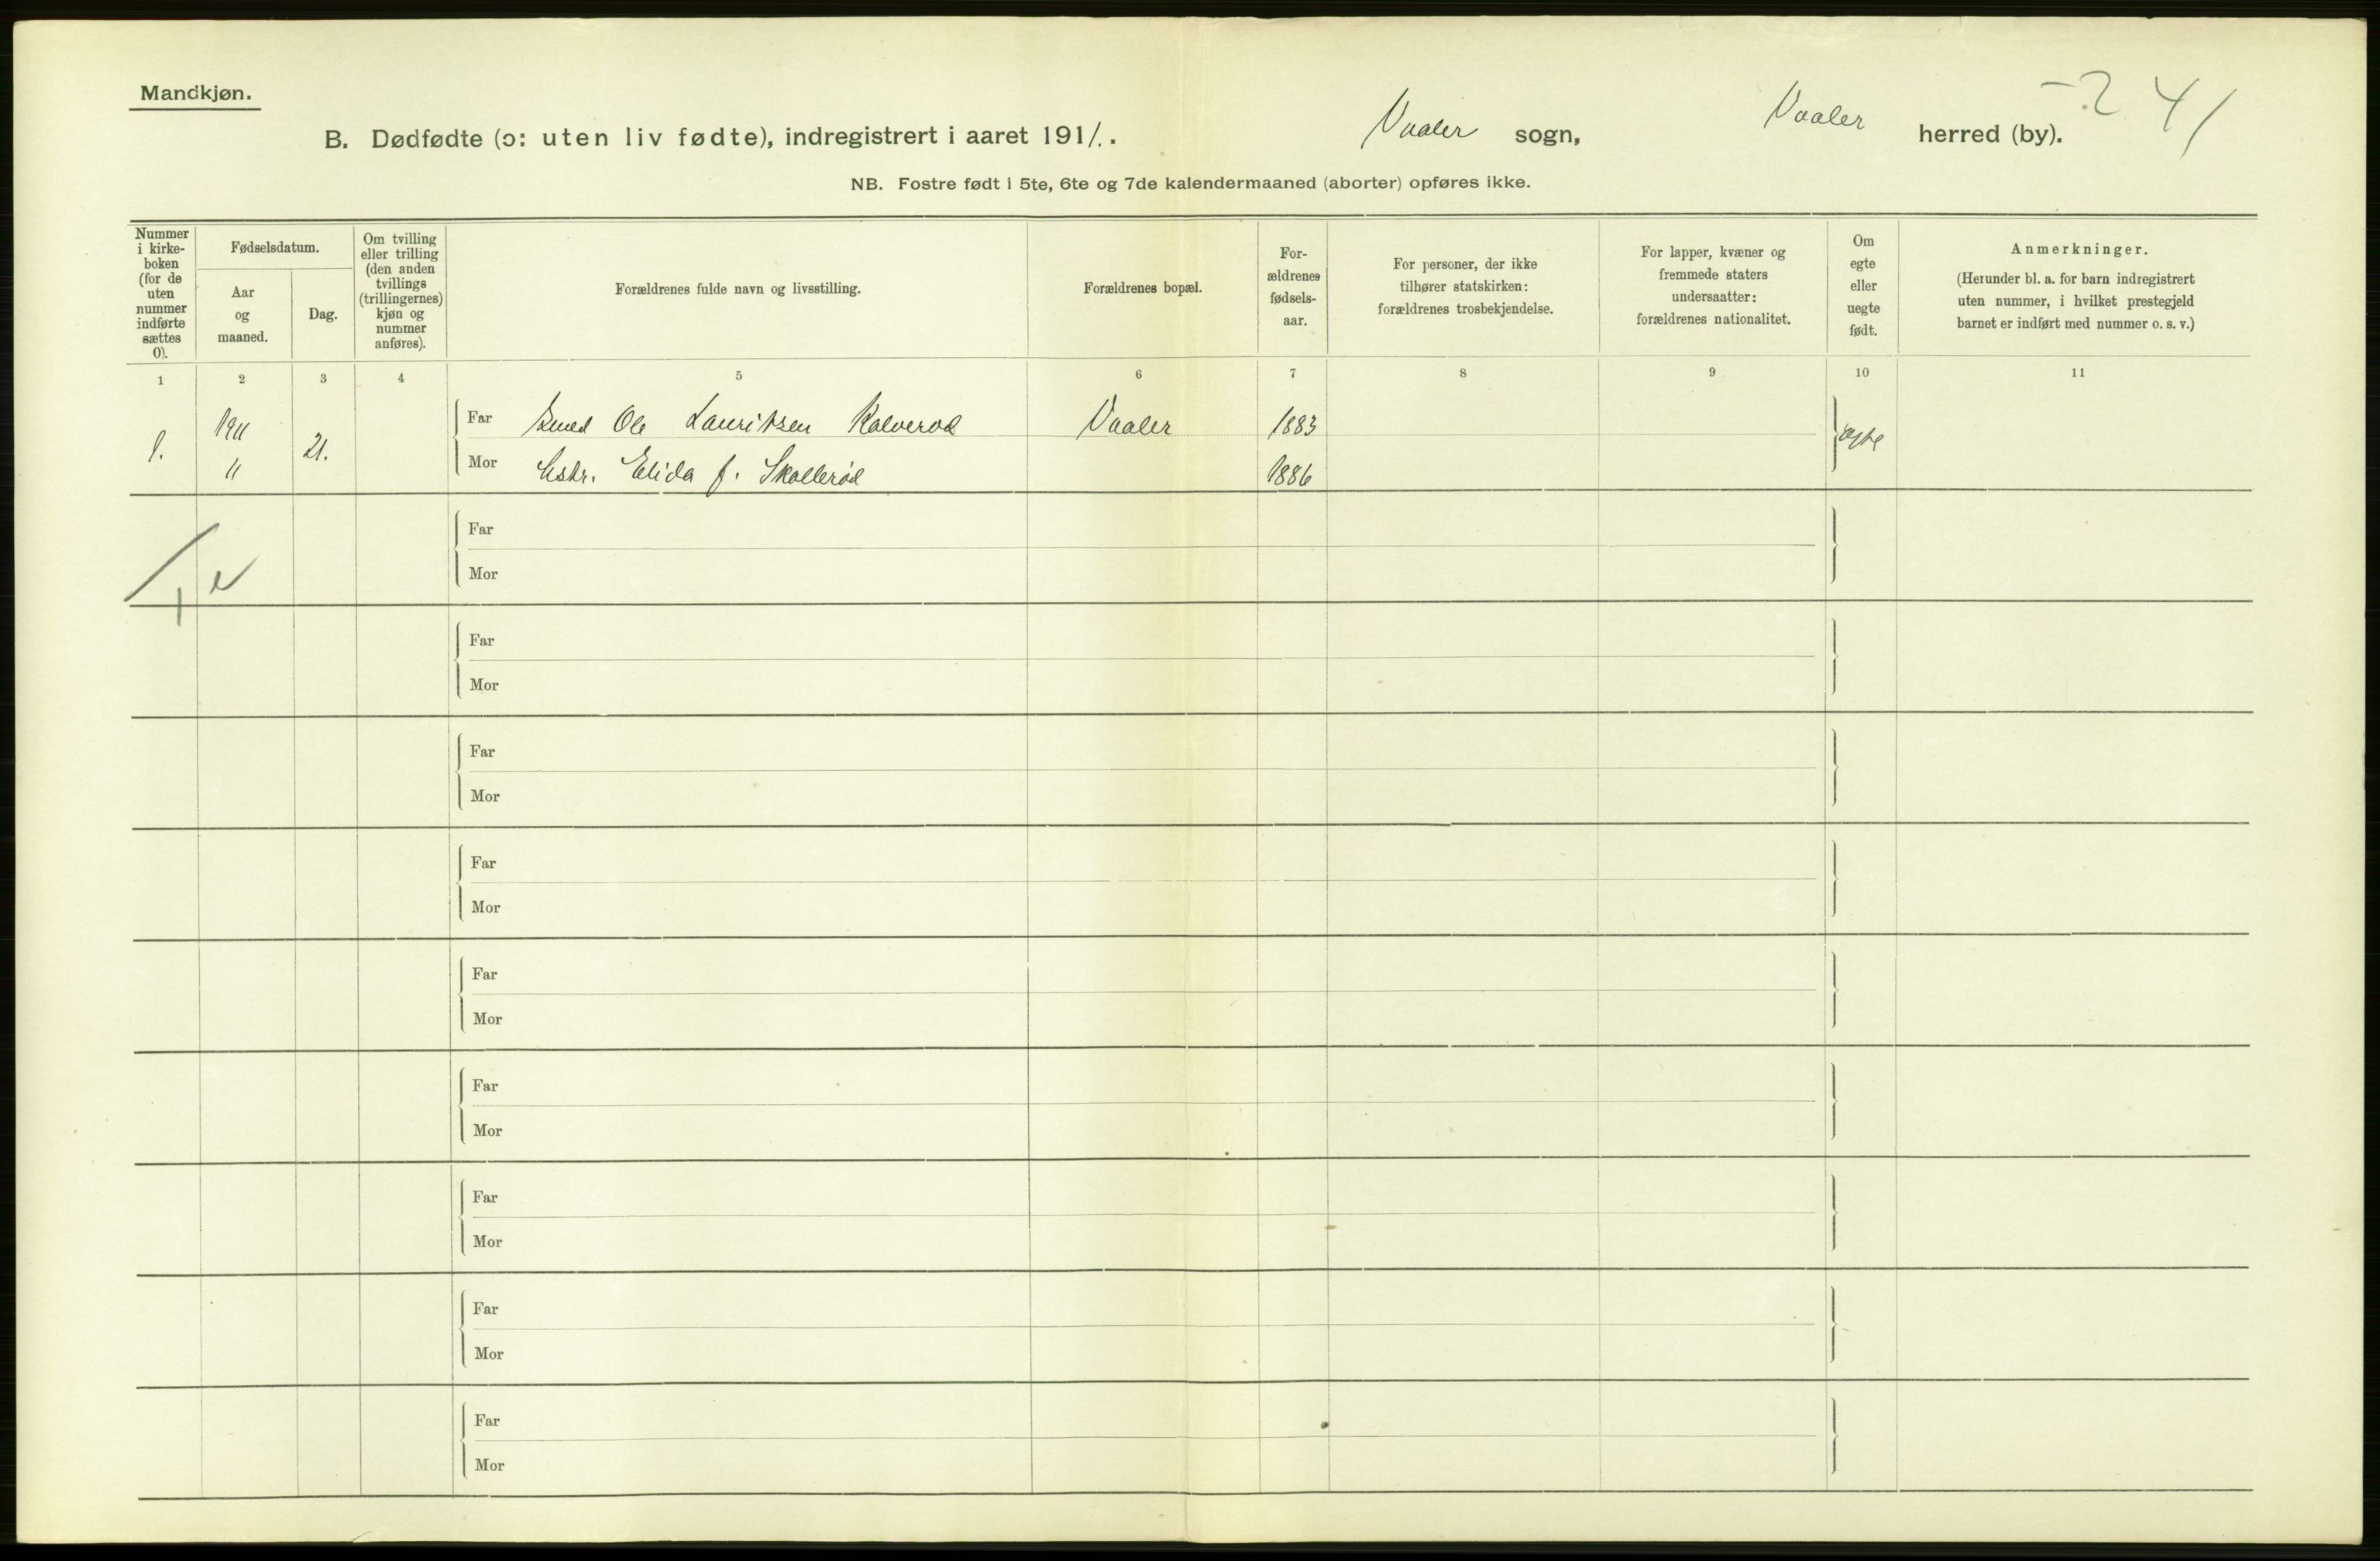 Mandkjøn.
B. Dødfødte (ɔ: uten liv fødte), indregistrert i aaret 1911. Vaaler sogn, Vaaler herred (by).
NB. Fostre født i 5te, 6te og 7de kalendermaaned (aborter) opføres ikke.
Nummer
i kirke-
boken
(for de
uten
nummer
indførte
sættes
0).
Fødselsdatum.
Aar
og
maaned.
Dag.
Om tvilling
eller trilling
(den anden
tvillings
(trillingernes)
kjøn og
nummer
anføres).
Forældrenes fulde navn og livsstilling.
Forældrenes bopæl.
For-
ældrenes
fødsels-
aar.
For personer, der ikke
tilhører statskirken:
forældrenes trosbekjendelse.
For lapper, kvæner og
fremmede staters
undersaatter:
forældrenes nationalitet.
Om
egte
eller
uegte
født.
Anmerkninger.
(Herunder bl. a. for barn indregistrert
uten nummer, i hvilket prestegjeld
barnet er indført med nummer o. s. v.)
1 2 3 4 5 6 7 8 9 10 11
1. 1911 21. Far Ole Lauritsen Kalverød Vaaler 1883 egte
11 Mor Hstr. Elida f. Skallerød 1886
Far
Mor
Far
Mor
Far
Mor
Far
Mor
Far
Mor
Far
Mor
Far
Mor
Far
Mor
Far
Mor